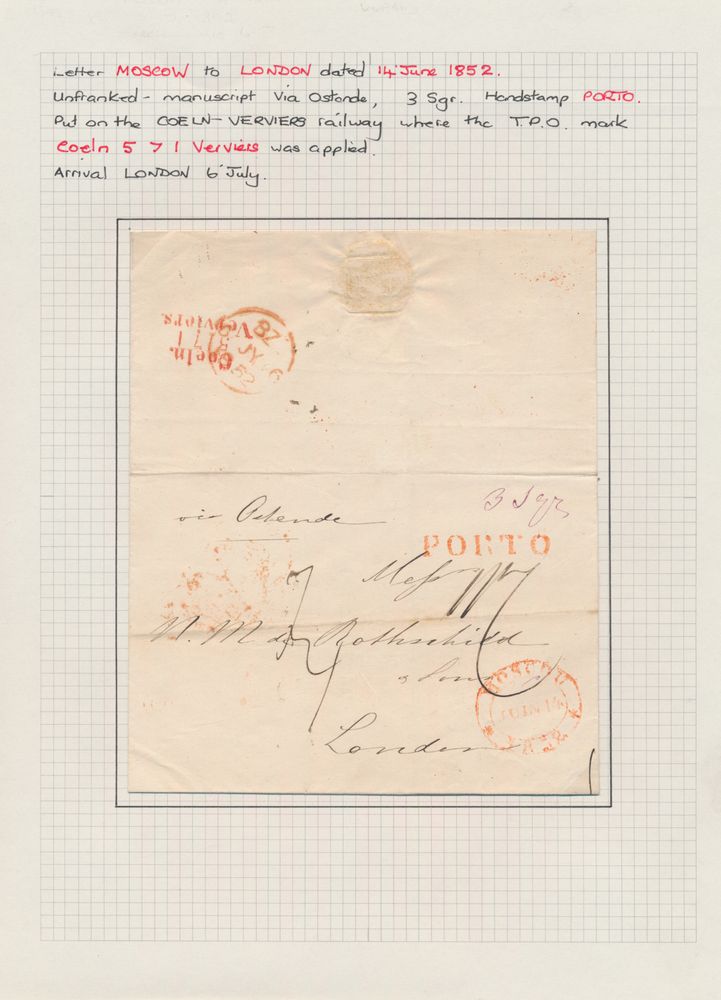 Letter MOSCOW to LONDON dated 14 June 1852.
Unfranked - manuscript Via Ostende, 3 Sgr. Handstamp PORTO.
Put on the COELN - VERVIERS railway where the T.P.O. mark
Coeln 5 7 1 Verviers was applied.
Arrival LONDON 6 July.
Verviers.
Coeln.
JY 6
52
3 Sgr
via Ostende
PORTO
Mess
N. M. de Rothschild
& Sons
London
MOSCOU
JUIN 14
1852